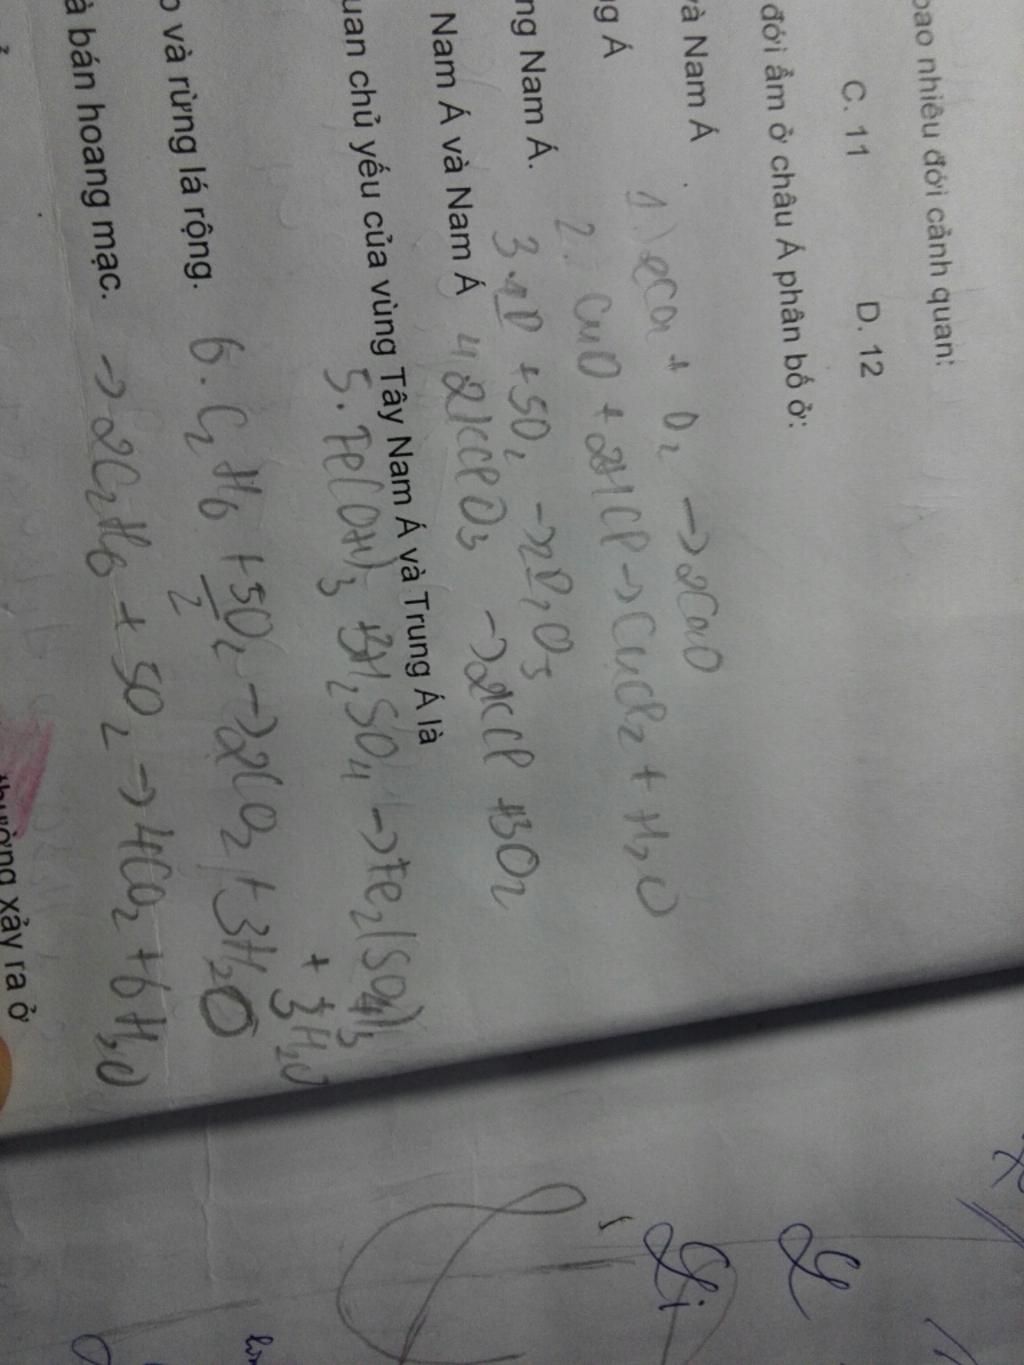 bao nhiêu đới cảnh quan:
C. 11 D. 12
đới ẩm ở châu Á phân bố ở:
và Nam Á
ng Á
ng Nam Á.
Nam Á và Nam Á
uan chủ yếu của vùng Tây Nam Á và Trung Á là
o và rừng lá rộng.
à bán hoang mạc.
thường xảy ra ở
1.) 2Ca + O2 → 2CaO
2. CuO + 2HCl → CuCl2 + H2O
4. 2KClO3 → 2KCl + 3O2
5. Fe(OH)3 + 3H2SO4 → Fe2(SO4)3
+ 3H2O
6. C2H6 + 5O2 → 2CO2 + 3H2O
2
→ 2C2H6 + 5O2 → 4CO2 + 6H2O